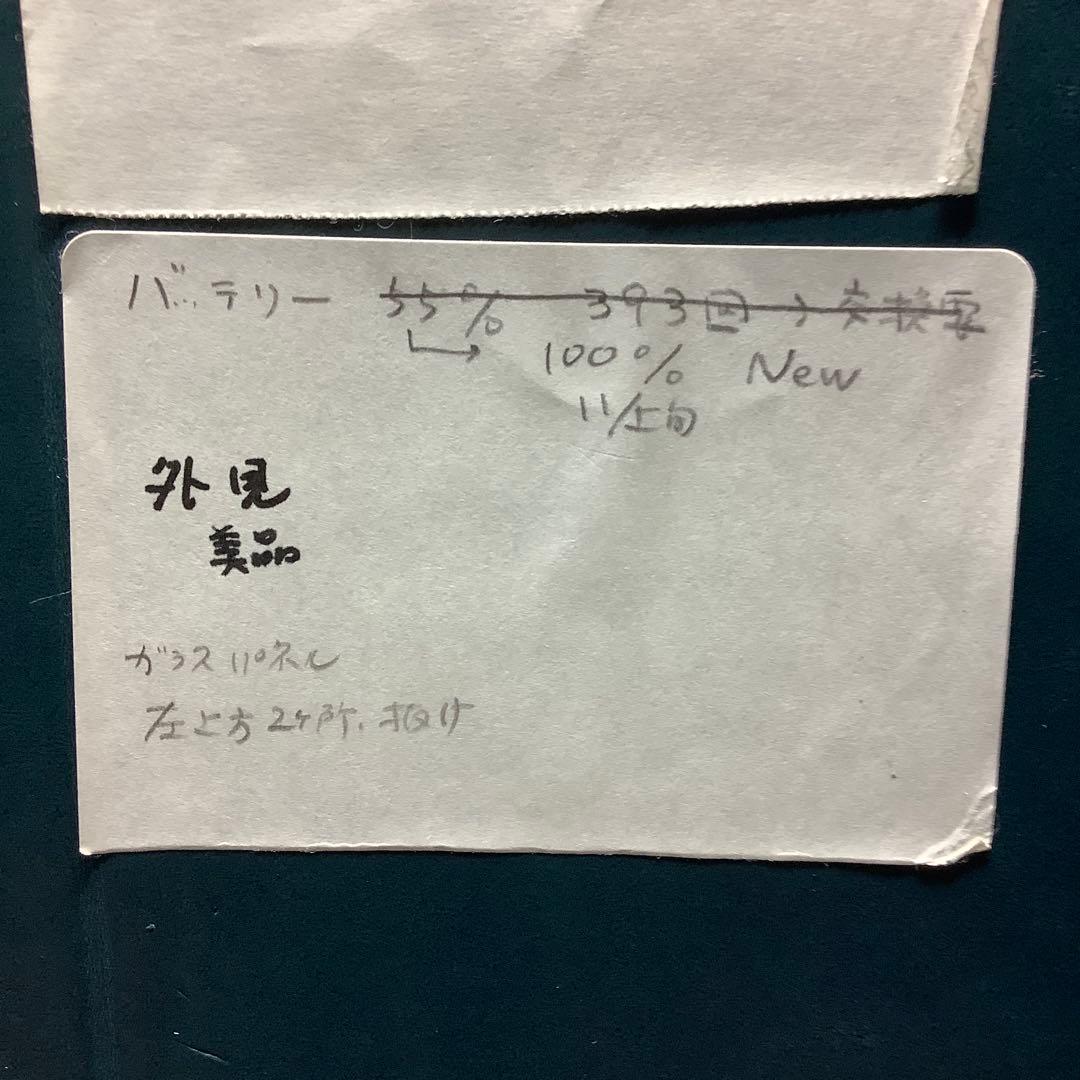 バッテリー 55% 393回 → 交換要
100% New
11/上旬
外見
美品
ガラスパネル
左上方2ヶ所、抜け